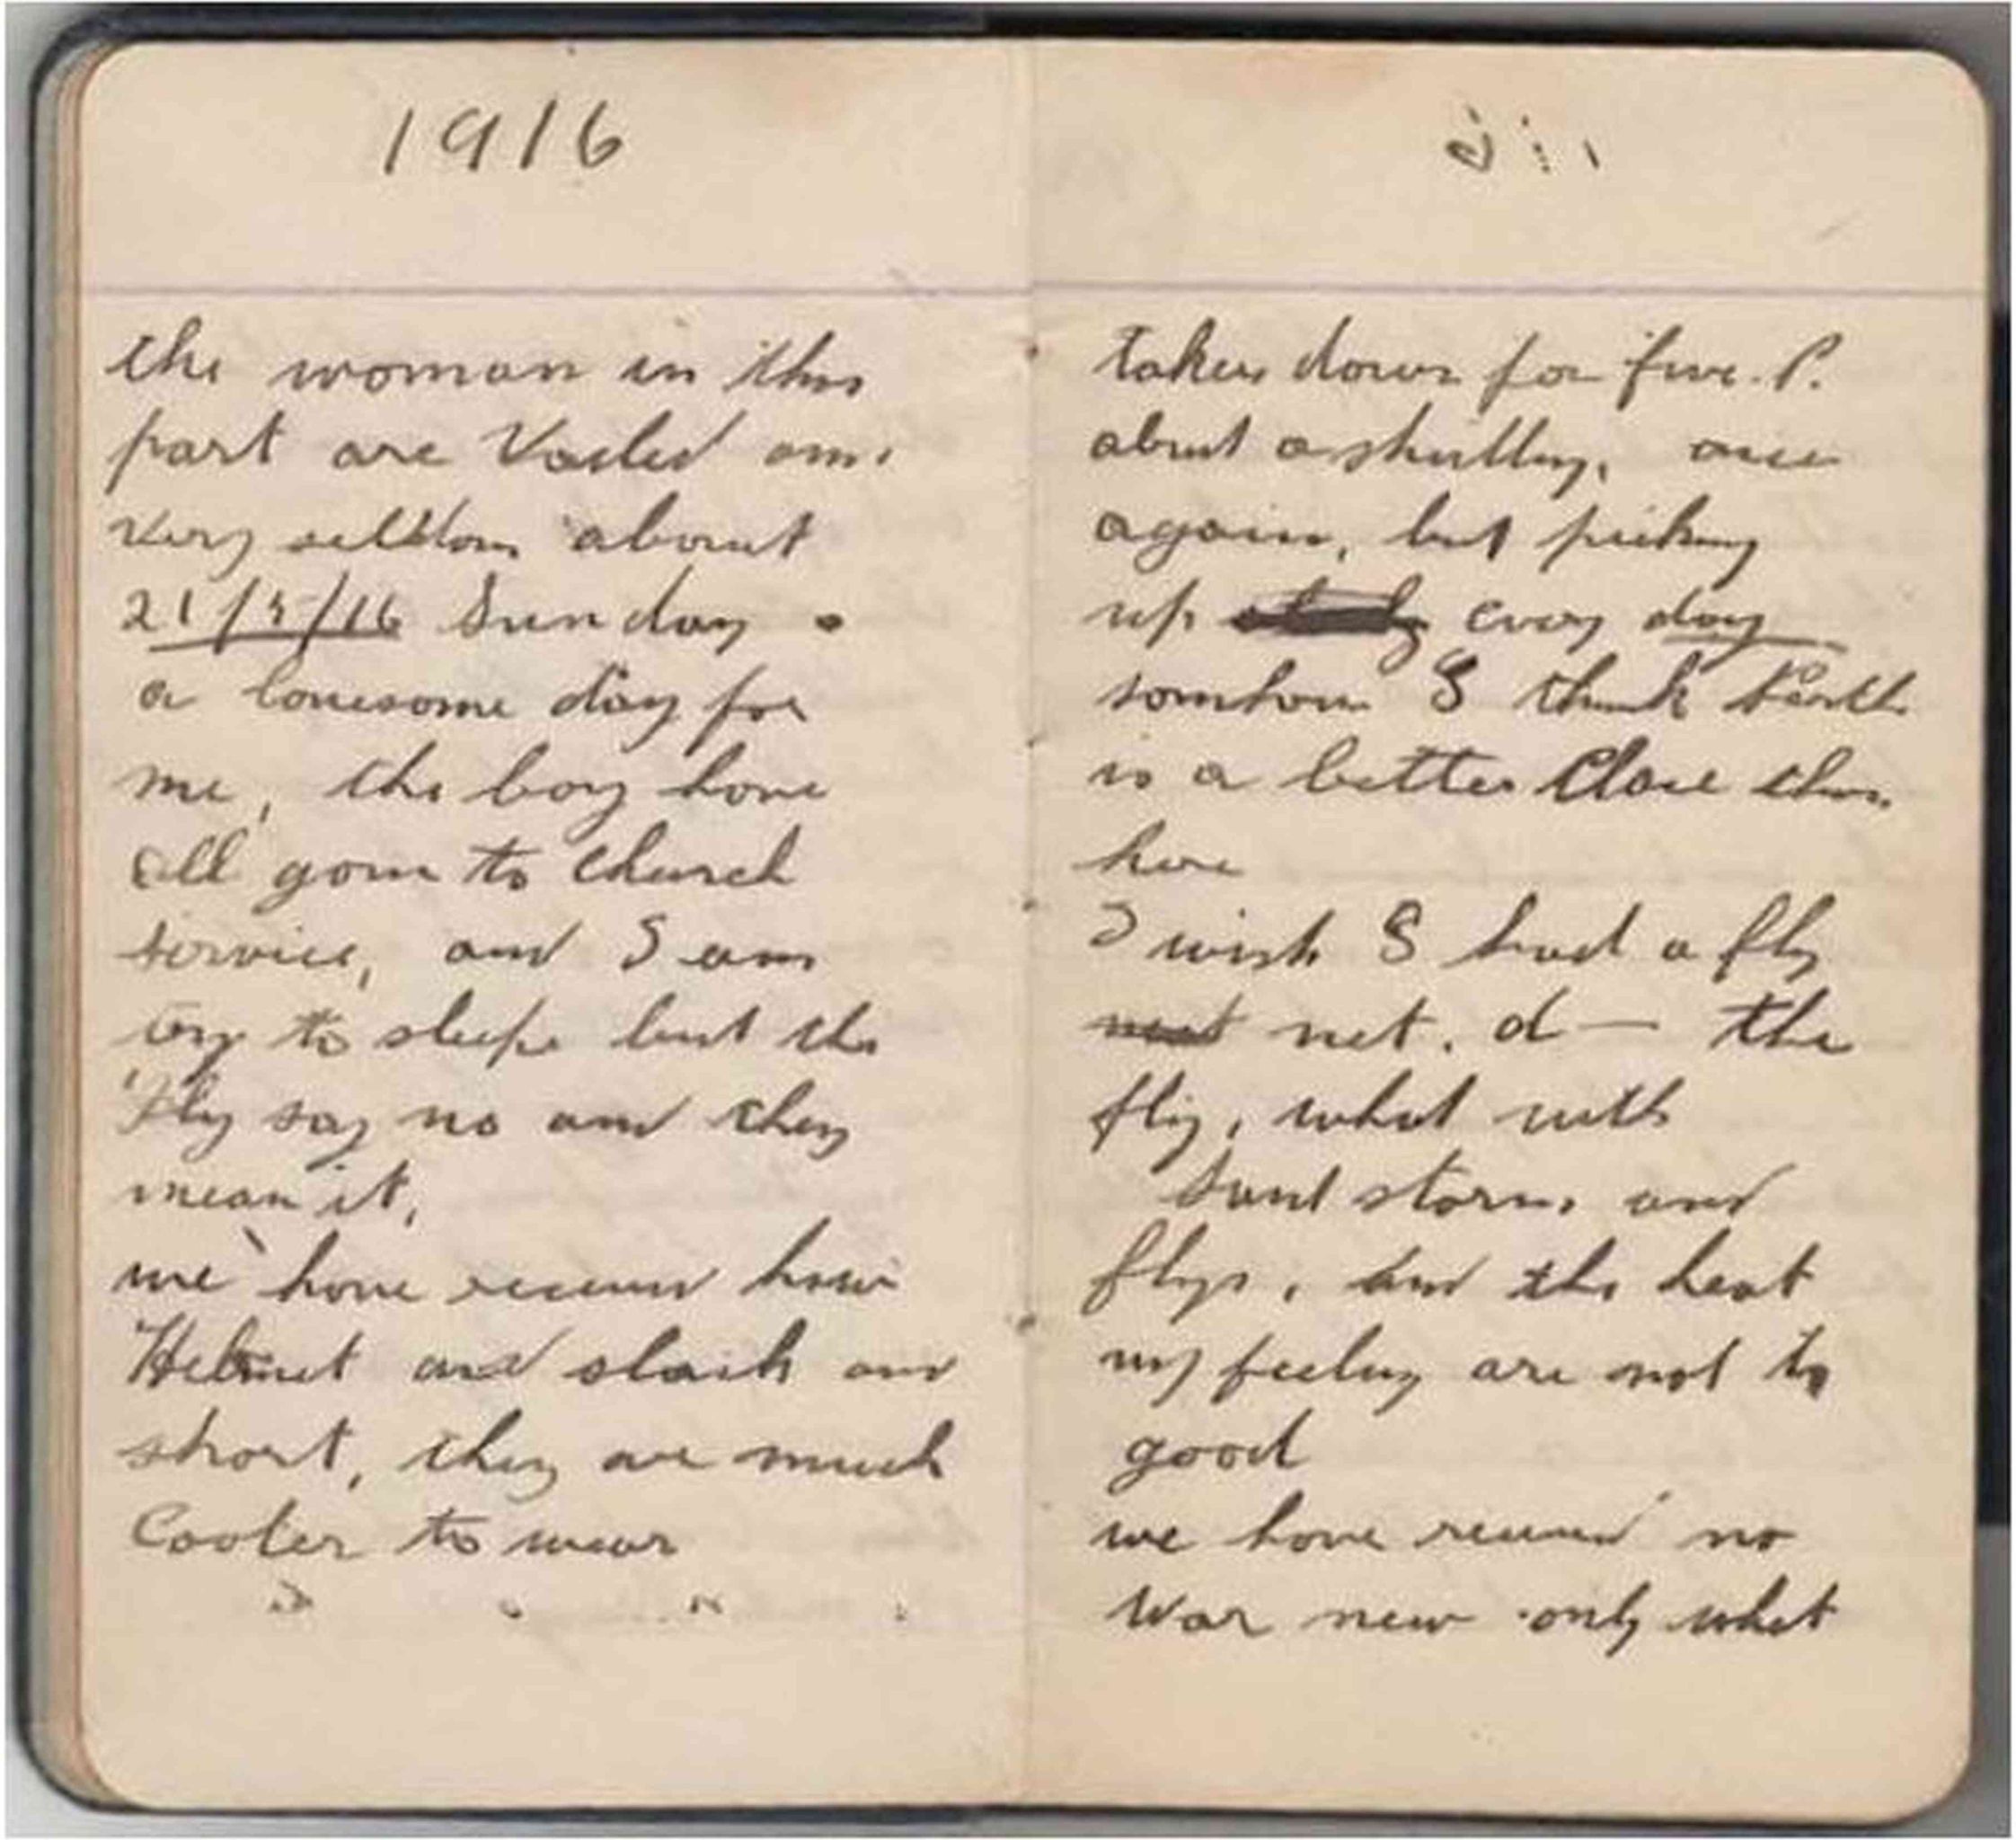 1916
the woman in this
part are Vailed and
veryselldom about
21/5/16 Sunday
a lonesome day for
me, the boy have
all gone to church
service, and I am
try to sleepe but the
Fly say no and they
mean it,
we have received
Helmet and slack and
short, they are much
Cooler to wear
taken down for five. P.
about a shilling, once
again, but picking
up every day
somhow I think Perth
is a better Place than
here
I wish I had a fly
net. d— the
fly, what with
sand storm, and
flys, and the heat
my feeling are not to
good
we have received no
War new only what